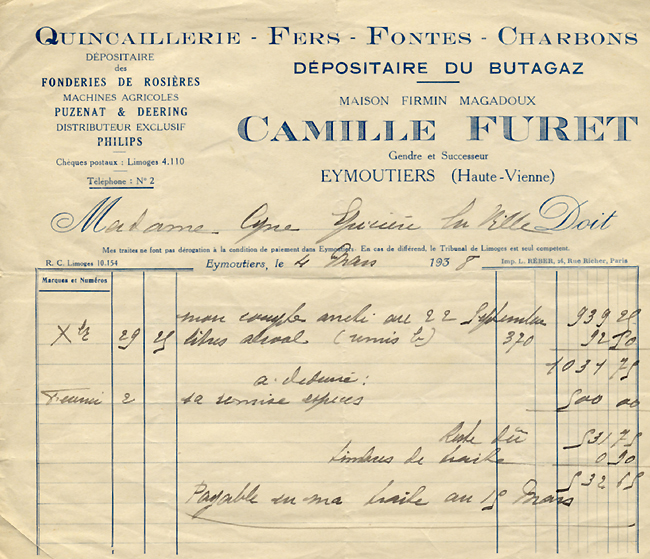 QUINCAILLERIE - FERS - FONTES - CHARBONS
DÉPOSITAIRE
des
FONDERIES DE ROSIÈRES
MACHINES AGRICOLES
PUZENAT & DEERING
DISTRIBUTEUR EXCLUSIF
PHILIPS
Chèques postaux : Limoges 4.110
Téléphone : N° 2
DÉPOSITAIRE DU BUTAGAZ
MAISON FIRMIN MAGADOUX
CAMILLE FURET
Gendre et Successeur
EYMOUTIERS (Haute-Vienne)
Madame Epicière La Ville Doit
Mes traites ne font pas dérogation à la condition de paiement dans Eymoutiers. En cas de différend, le Tribunal de Limoges est seul compétent.
R. C. Limoges 10.154 Eymoutiers, le 4 Mars 1938 Imp. L. REBER, 16, Rue Richer, Paris
Marques et Numéros
mon compte au 22 Septembre 939 25
Xbre 29 25 litres alcool (remis 370 92 50
1031 75
a déduire :
Février 2 sa remise espèces 500 00
Reste dû 531 75
timbres de traite 0 90
532 65
Payable en ma traite au 15 Mars